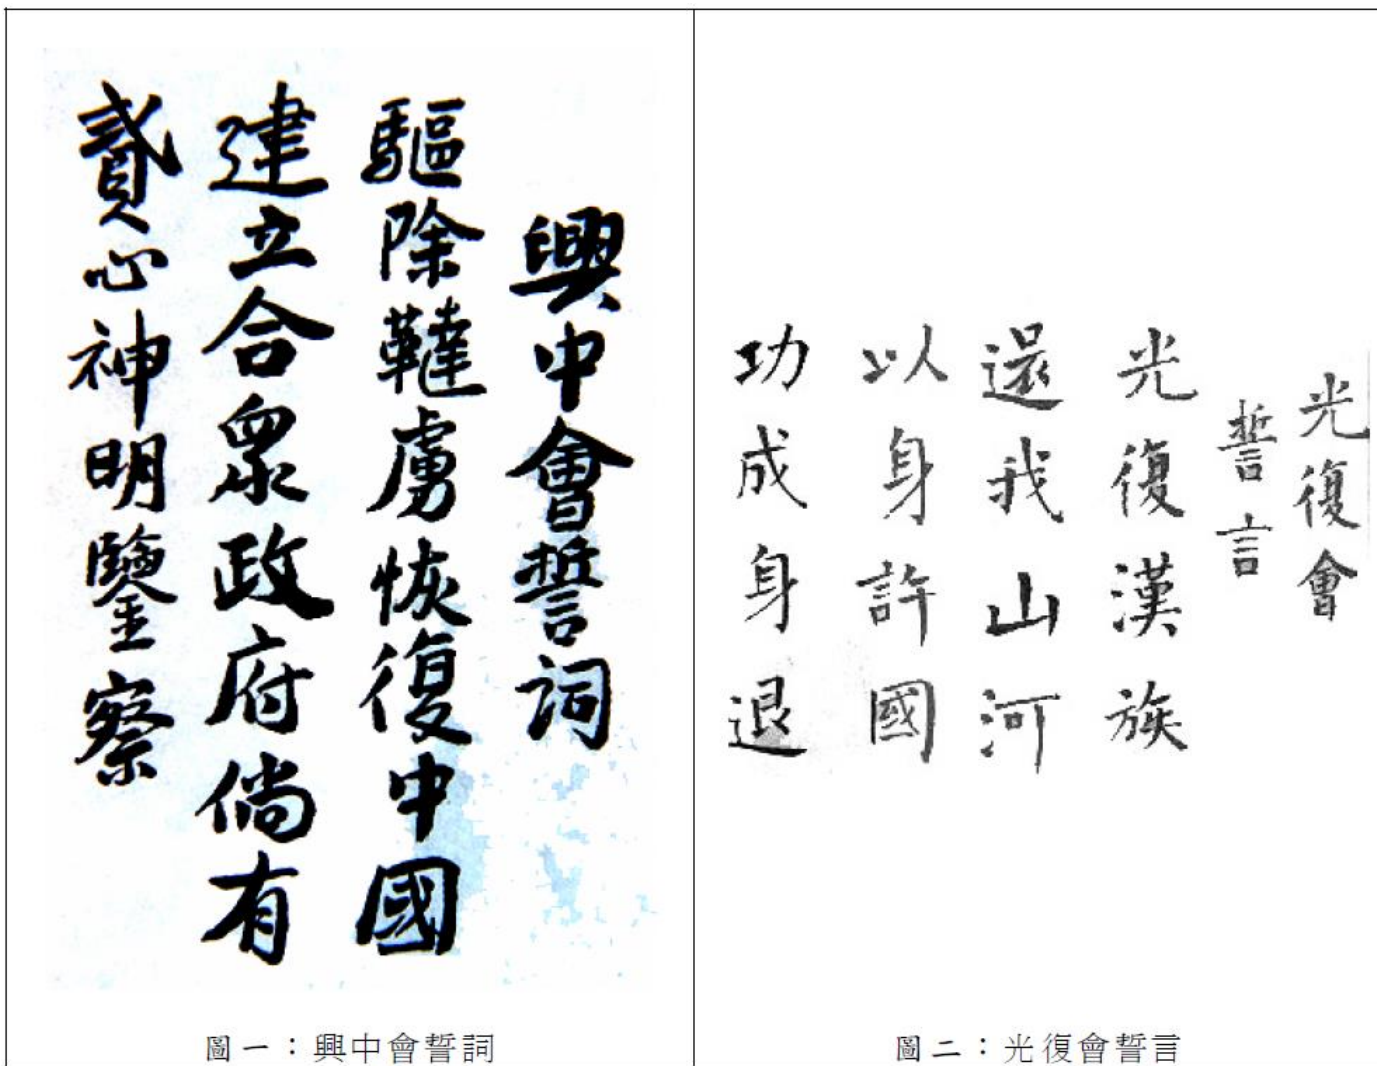 興中會誓詞
驅除韃虜恢復中國
建立合眾政府倘有
貳心神明鑒察
圖一：興中會誓詞
光復會
誓言
光復漢族
還我山河
以身許國
功成身退
圖二：光復會誓言